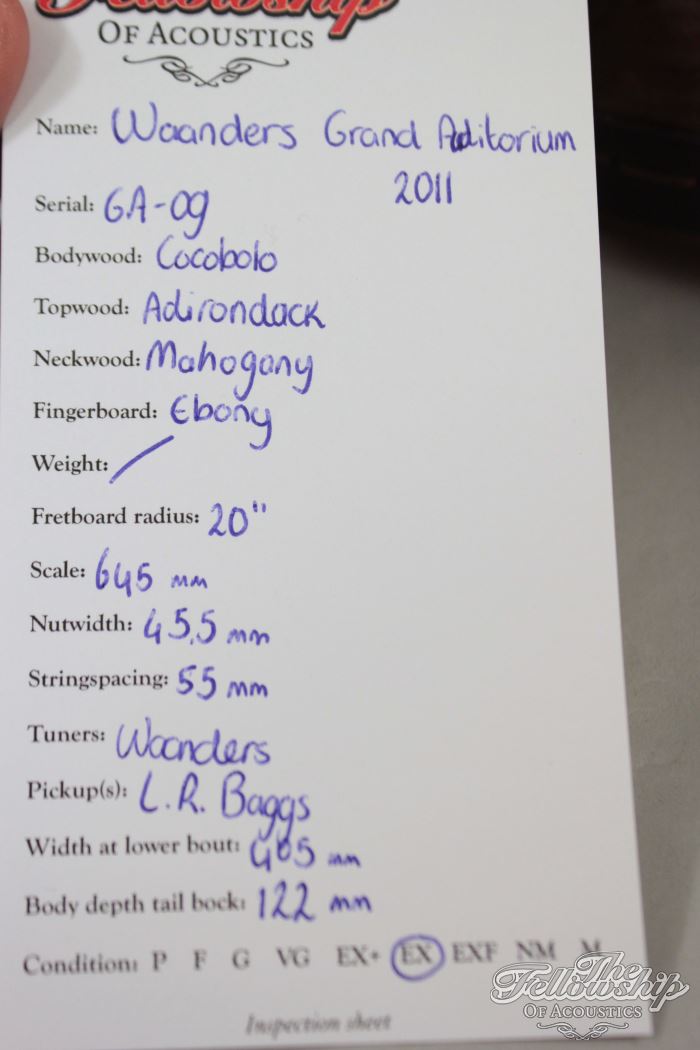 Fellowship
OF ACOUSTICS
Name: Waanders Grand Aditorium
2011
Serial: GA-09
Bodywood: Cocobolo
Topwood: Adirondack
Neckwood: Mahogany
Fingerboard: Ebony
Weight: /
Fretboard radius: 20"
Scale: 645 mm
Nutwidth: 45,5 mm
Stringspacing: 55 mm
Tuners: Waanders
Pickup(s): L.R. Baggs
Width at lower bout: 405 mm
Body depth tail bock: 122 mm
Condition: P F G VG EX+ EX EXF NM M
Inspection sheet
The
Fellowship
OF ACOUSTICS